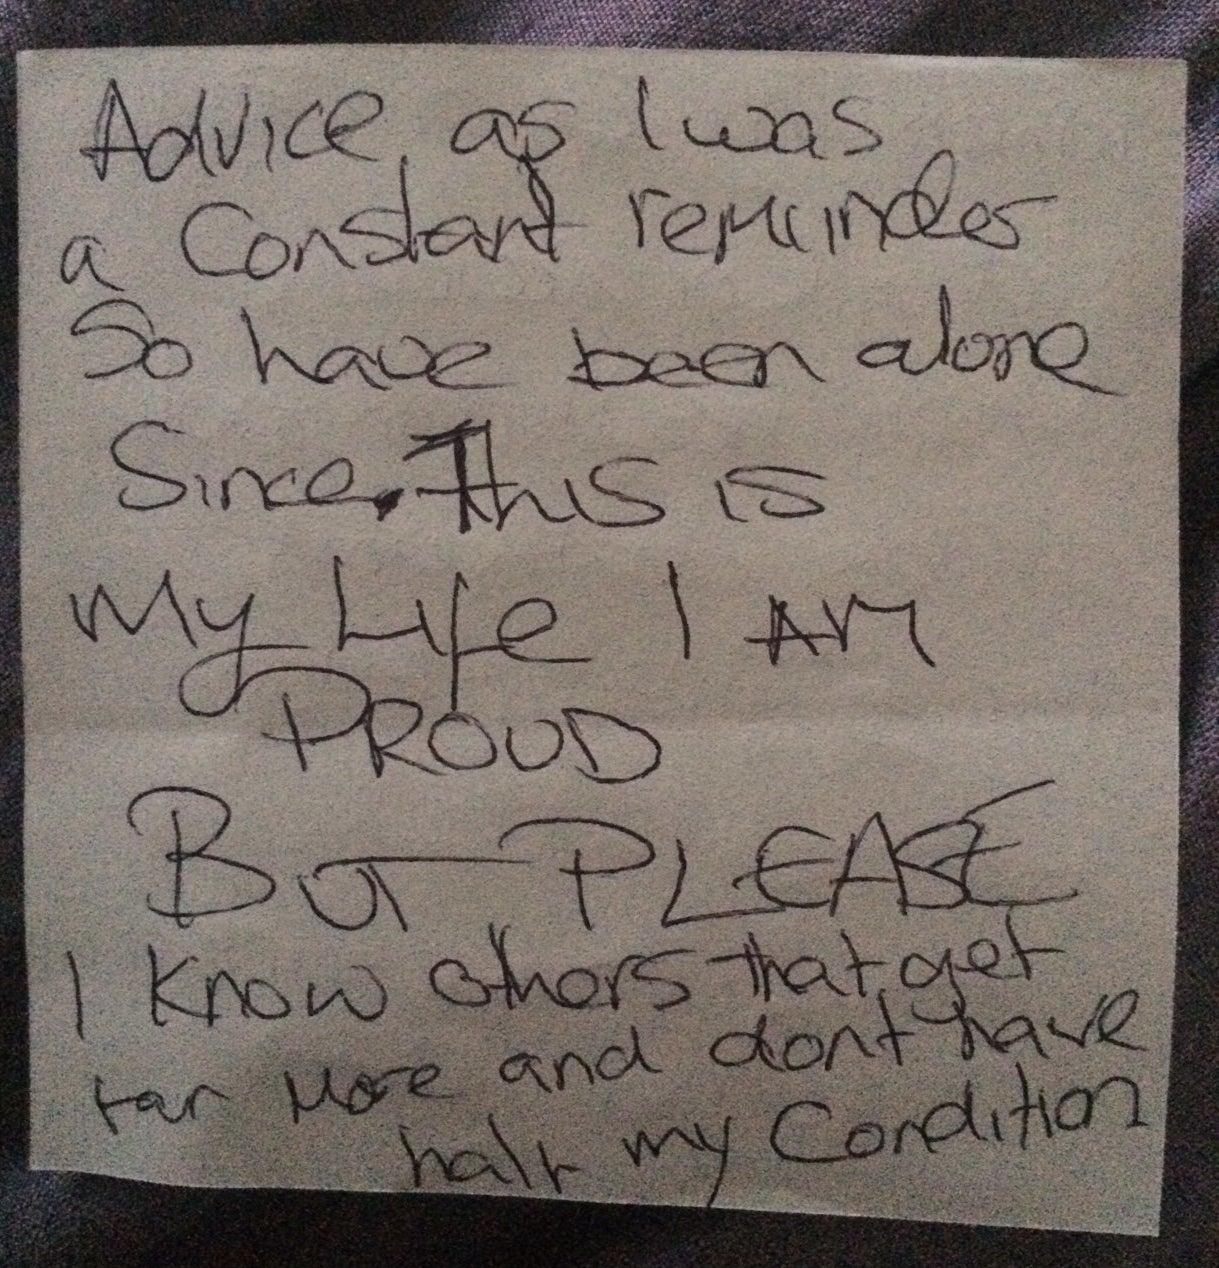 Advice, as I was
a Constant reminder
So have been alone
Since. This is
My Life I AM
PROUD
BUT PLEASE
I know others that get
far more and dont have
half my Condition